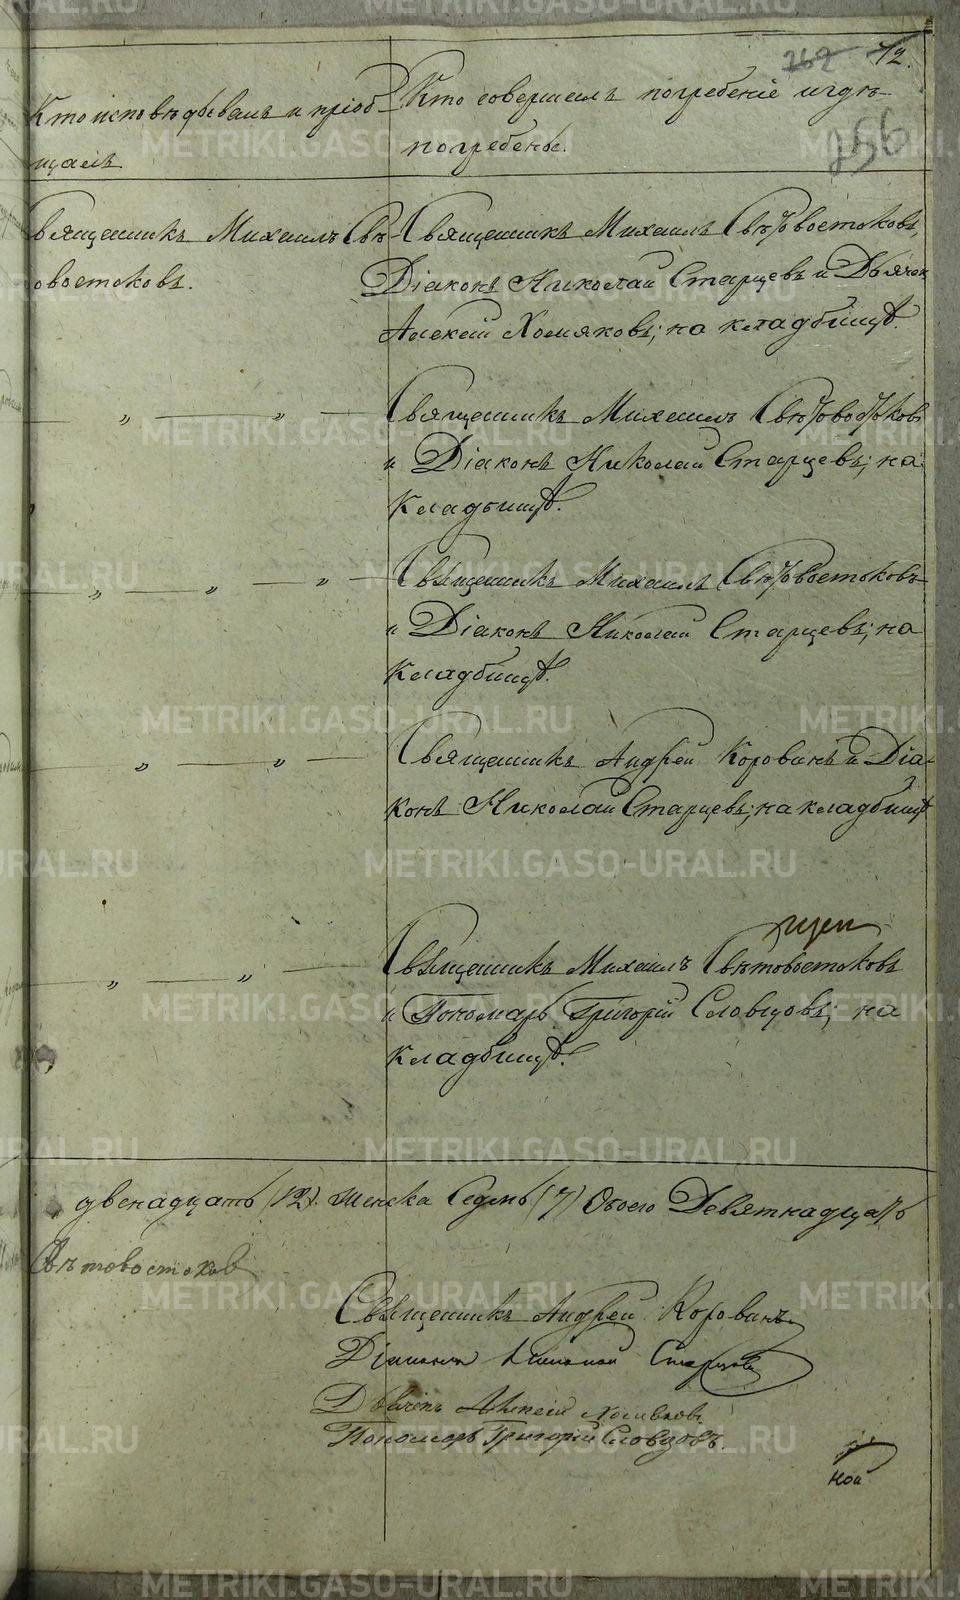 262 72.
256
Кто исповѣдывалъ и пріоб-
щалъ
Кто совершалъ погребеніе и гдѣ
погребены.
Священникъ Михаилъ Свѣ-
товостоковъ.
Священникъ Михаилъ Свѣтовостоковъ,
Діаконъ Николай Старцевъ и Дьячек
Алексій Хомяковъ; на кладбищѣ.
— „ — „ —
Священникъ Михаилъ Свѣтовостоковъ
и Діаконъ Николай Старцевъ; на
Кладбищѣ.
— „ — „ — „ —
Священникъ Михаилъ Свѣтовостоковъ
и Діаконъ Николай Старцевъ; на
Кладбищѣ.
— „ — „ —
Священникъ Андрей Коровинъ и Діа-
конъ Николай Старцевъ; на кладбищѣ
— „ — „ —
Священникъ Михаилъ Свѣтовостоковъ
и Пономарь Григорій Словцовъ; на
Кладбищѣ.
двенадцать (12). Женска Седмь (7) Обоего Девятнадцать
Свѣтовостоковъ
Священникъ Андрей Коровинъ
Діаконъ Николай Старцевъ
Дьячекъ Алексій Хомяковъ
Пономарь Григорій Словцовъ.
ной
METRIKI.GASO-URAL.RU